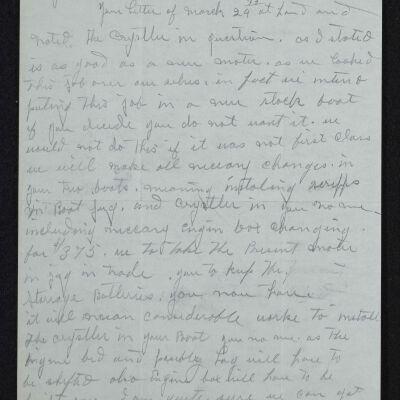 Your letter of March 29th at hand and
noted. The Crystler in question. as I stated
is as good as a new motor. as we looked
this job over our selves. in fact we intend
puting this job in a new stock boat
if you decide you do not want it. we
would not do this if it was not first class
we will make all nessary changes. in
your two boats. meaning instaling scripps
in Boat Jug. and Crystler in your no name
including nessary Engin box changing.
for $375. we to take the Present motor
in Jug in trade. you to keep the
storage Batteries. you now have
it will mean considerable worke to install
the Crystler in your Boat you no me. as the
Engine bed and posibly Log will have to
be shifted also Engine box will have to be
sure we can get